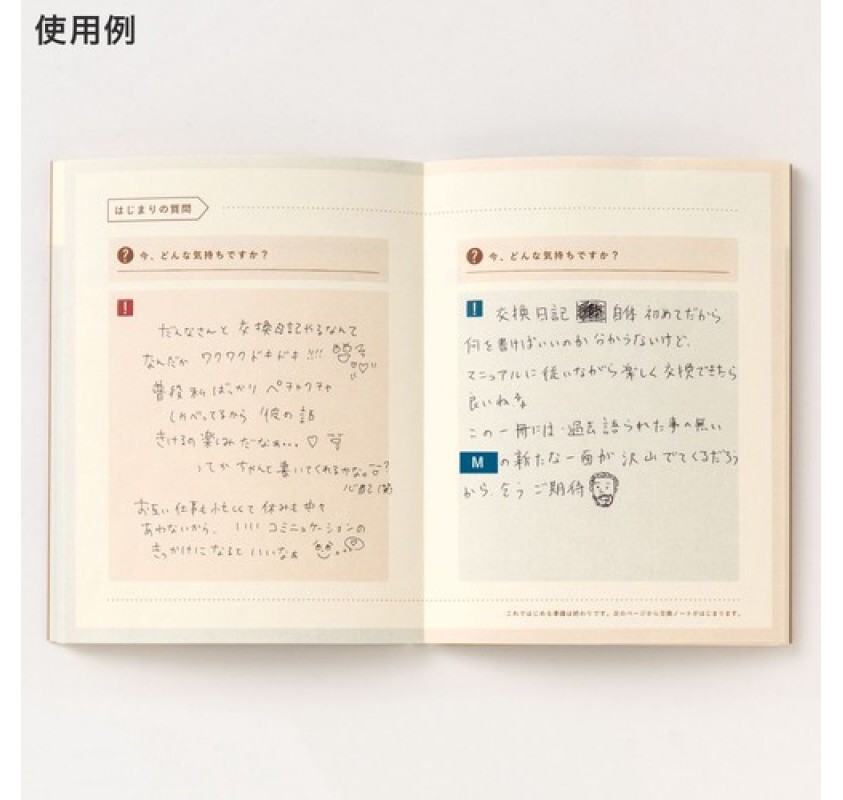 使用例
はじまりの質問
? 今、どんな気持ちですか?
!
だんなさんと 交換日記やるなんて
なんだか ワクワクドキドキ!!!
普段 私ばっかり ペチャクチャ
しゃべってるから 彼の話
きけるの楽しみだーなぁ... ♡
ってか ちゃんと書いてくれるかな。?
心配(笑)
お互い仕事も忙しくて 休みも中々
あわないから、いいコミニュケーションの
きっかけになるといいなぁ
? 今、どんな気持ちですか?
!
交換日記 自体 初めてだから
何を書けばいいのか分からないけど、
マニュアルに従いながら楽しく交換できたら
良いねぇ
この一冊には 過去語られた事の無い
M の新たな一面が沢山でてくるだろう
から、乞うご期待
これではじめる準備は終わりです。次のページから交換ノートがはじまります。